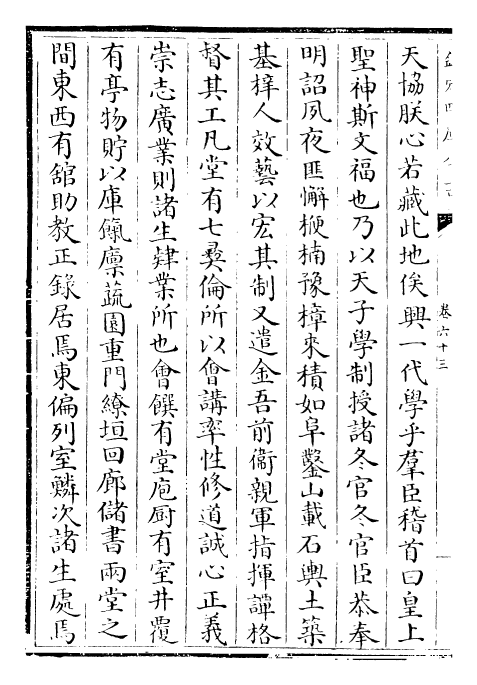 天協朕心若藏此地俟興一代學乎羣臣稽首曰皇上
聖神斯文福也乃以天子學制授諸冬官冬官臣恭奉
明詔夙夜匪懈楩楠豫樟來積如阜鑿山載石輿土築
基梓人效藝以宏其制又遣金吾前衞親軍指揮譚格
督其工凡堂有七彛倫所以會講率性修道誠心正義
崇志廣業則諸生肄業所也會饌有堂庖厨有室井覆
有亭物貯以庫餼廩蔬園重門繚垣回廊儲書兩堂之
間東西有舘助教正錄居焉東偏列室鱗次諸生處焉
卷六十三